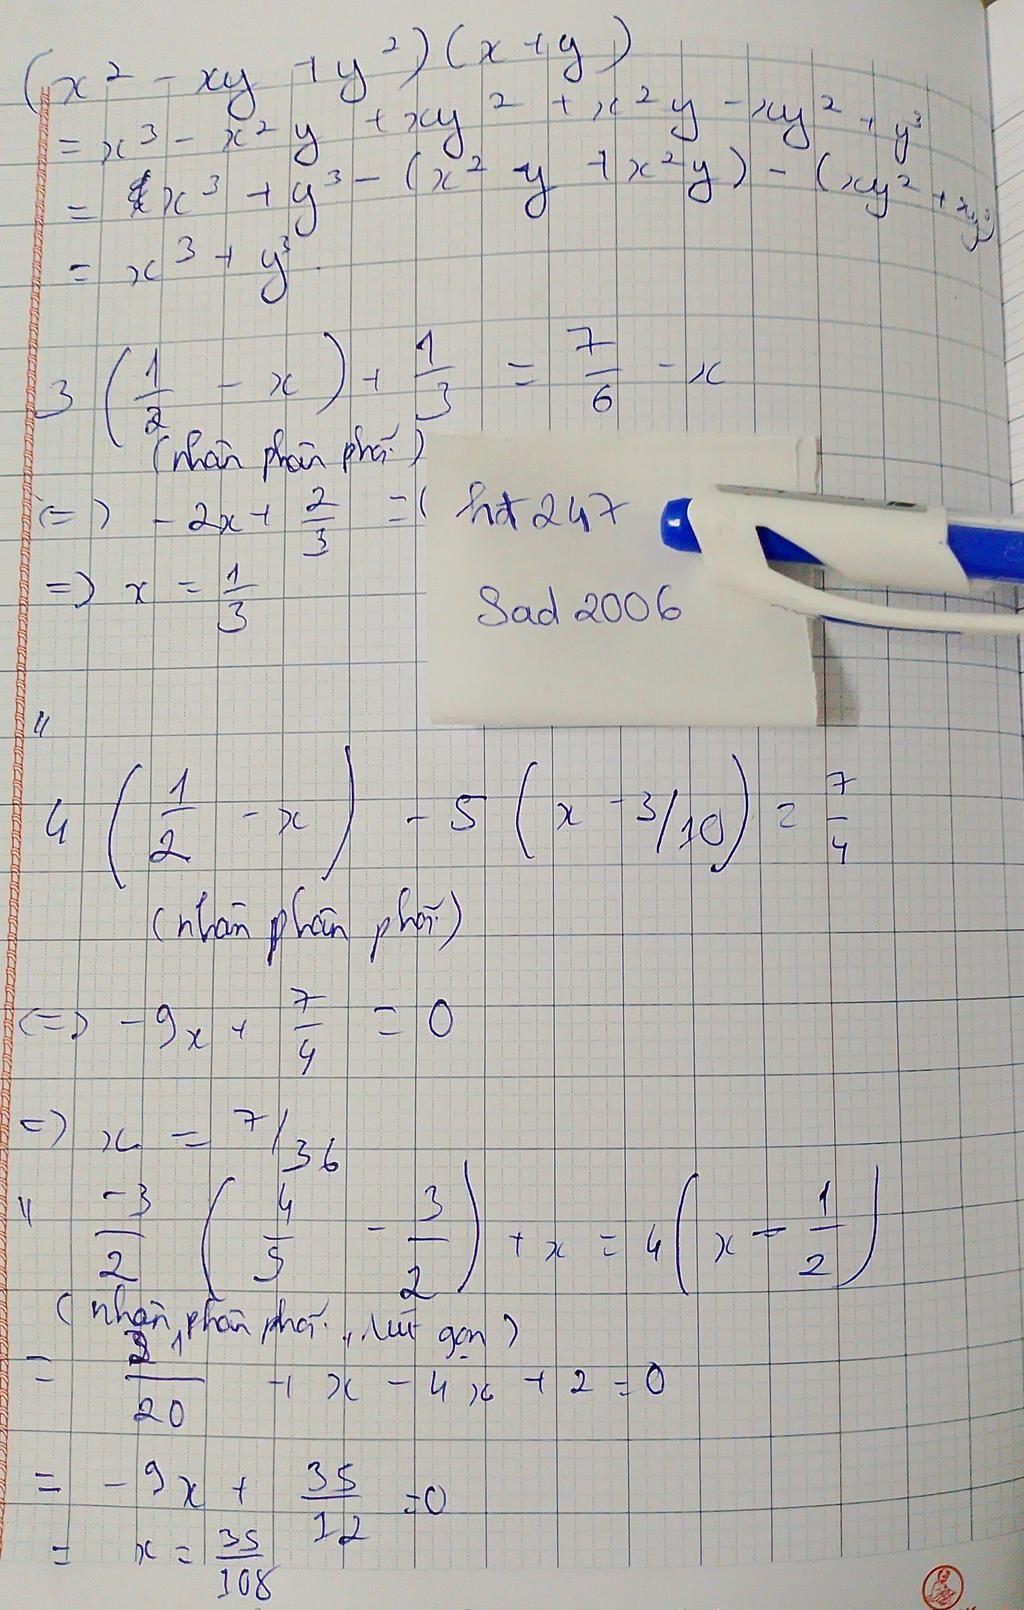 (x² - xy + y²)(x + y)
= x³ - x²y + xy² + x²y - xy² + y³
= x³ + y³ - (x² - y + x²y) - (xy² + xy²)
= x³ + y³.
3 (1/2 - x) + 1/3 = 7/6 - x
(nhân phân phối)
(=) - 2x + 2/3 = (
=) x = 1/3
ht247
Sad2006
"
4 (1/2 - x) - 5 (x - 3/10) = 7/4
(nhân phân phối)
(=) - 9x + 7/4 = 0
=) x = 7/36
" -3/2 (4/5 - 3/2) + x = 4 (x - 1/2)
(nhân phân phối, rút gọn)
= 21/20 + x - 4x + 2 = 0
= - 9x + 35/12 = 0
= x = 35/108